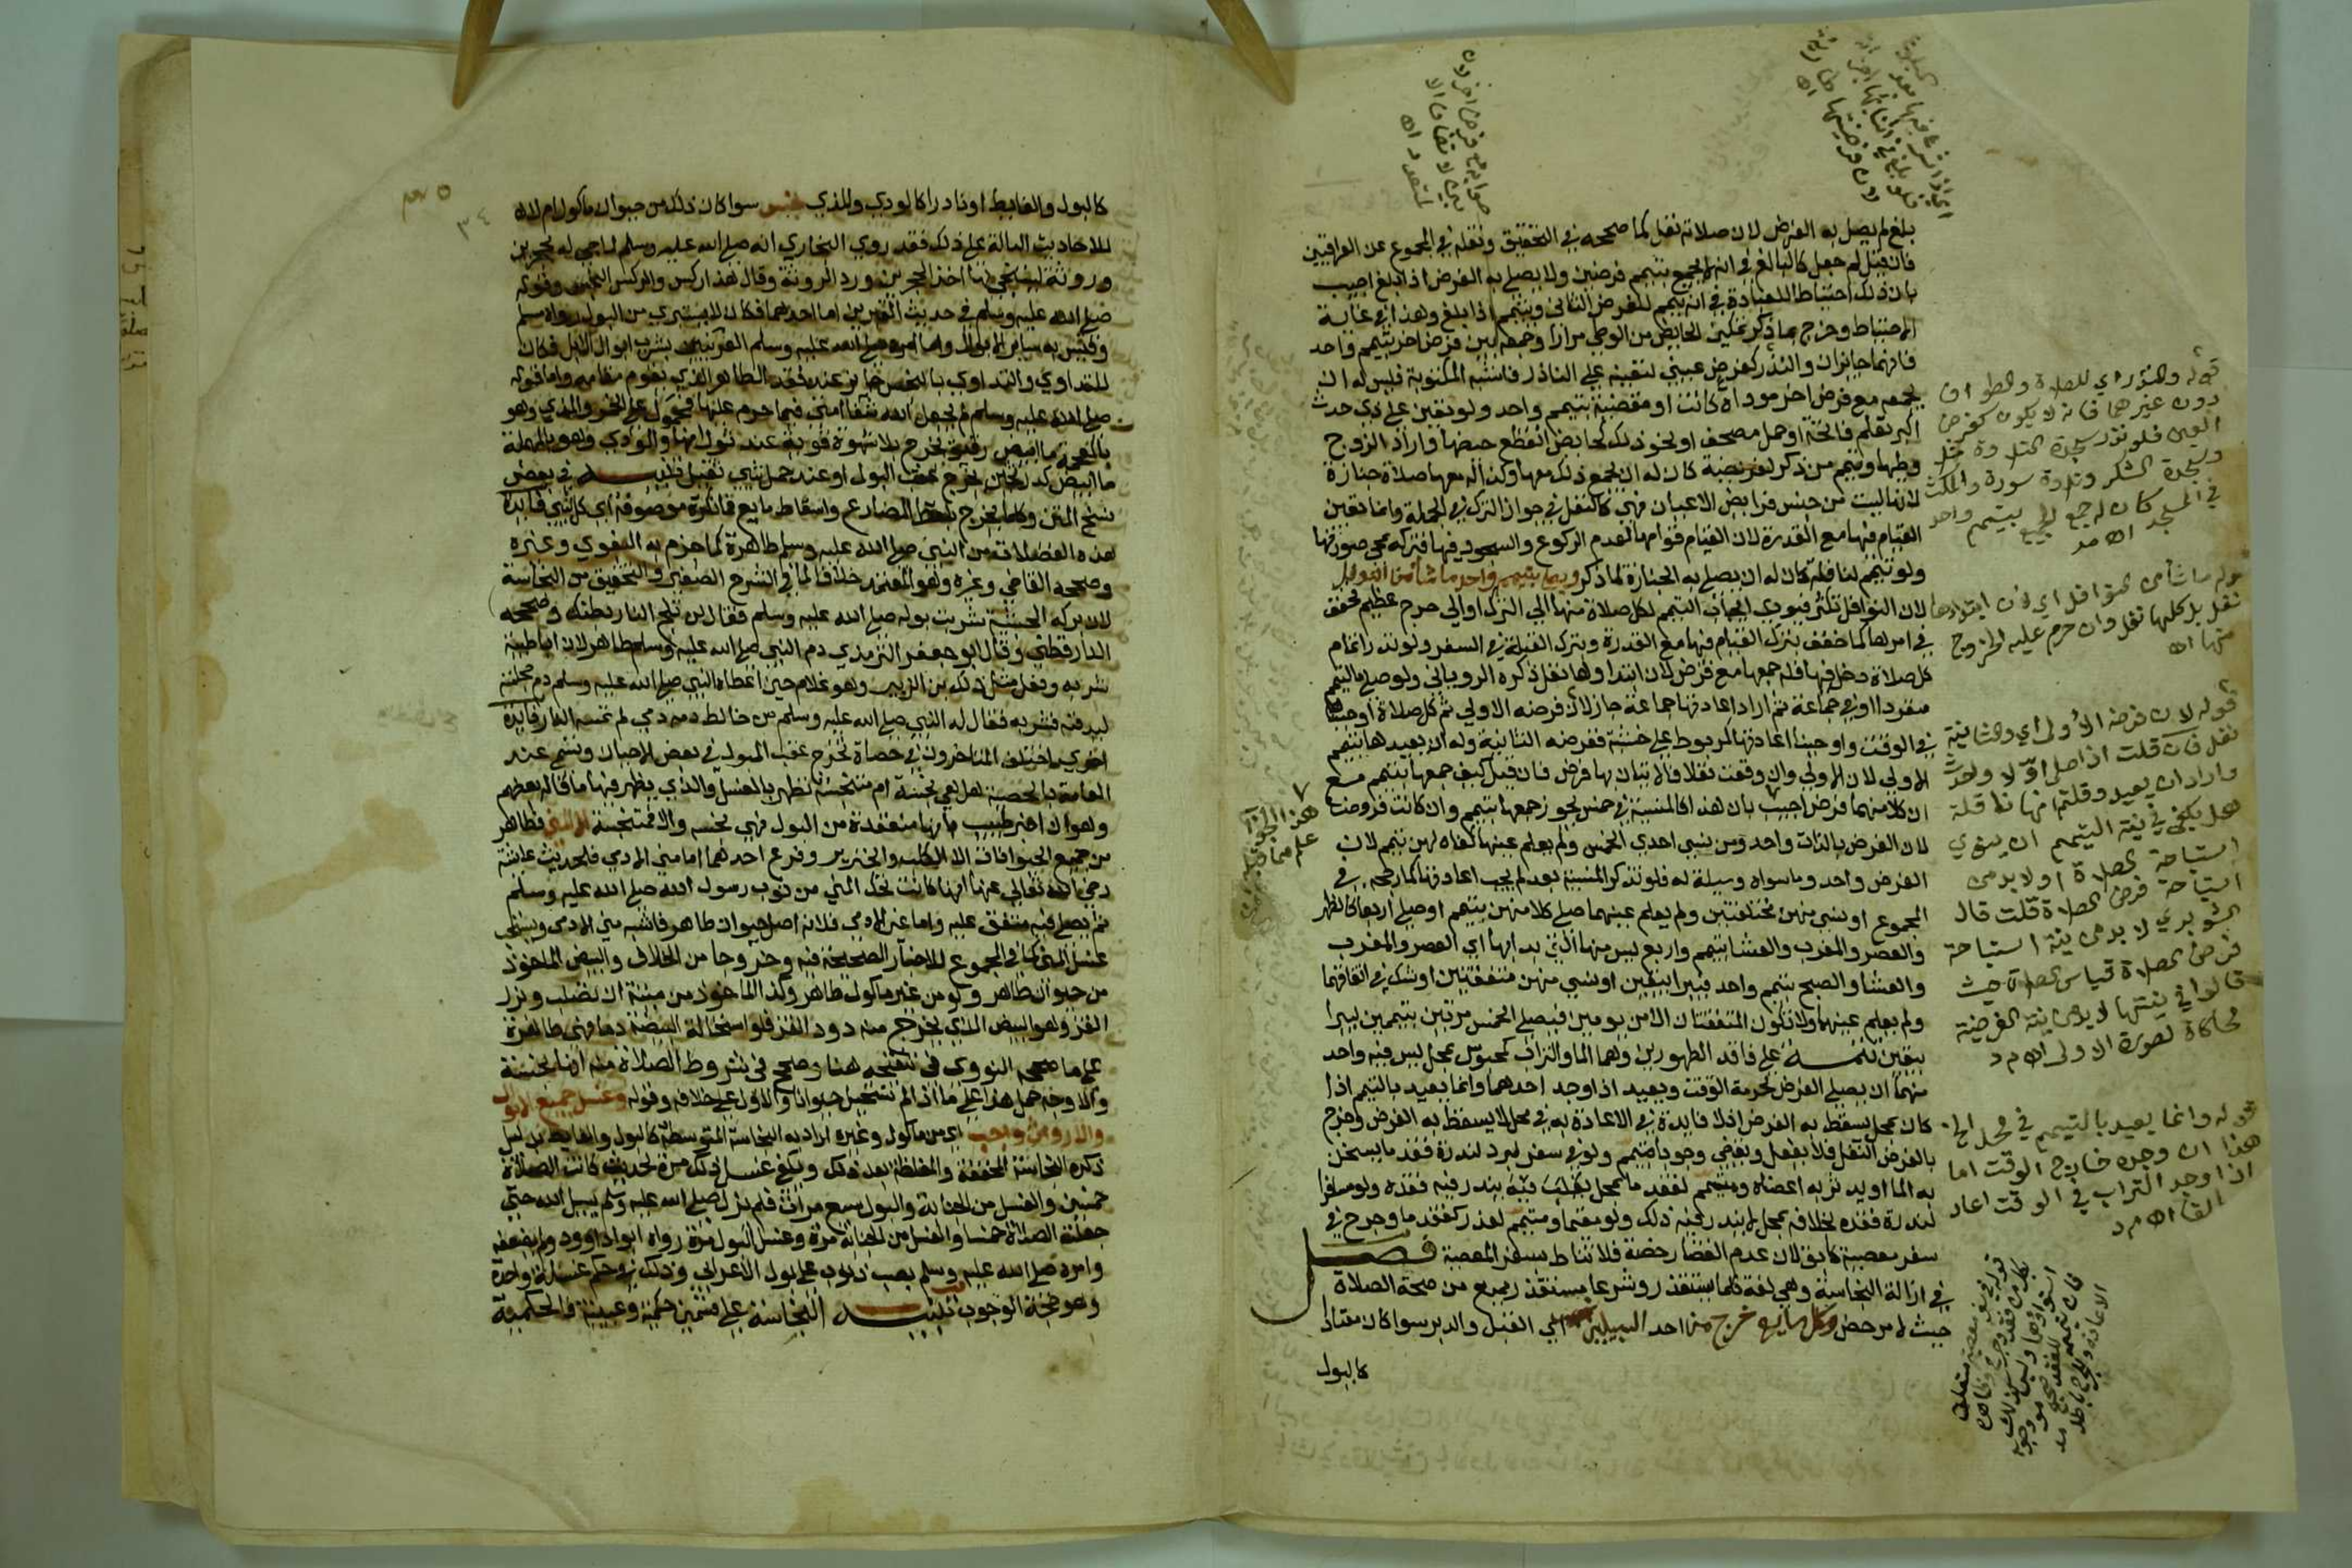 بلغ لم يصل به الفرض لان صلاته نفل كما صححه في التحقيق ونقله في المجموع عن العراقيين
فان قيل لم جعل كالبالغ في انه لا يجمع بتيمم فرضين ولا يصلي به الفرض اذا بلغ اجيب
بان ذلك احتياط للعبادة في انه يتيمم للفرض الثاني ويتيمم اذا بلغ وهذا في غاية
الاحتياط وخرج بما ذكر تمكين الحايض من الوطي مرارا وجمعه بين فرض اخر بتيمم واحد
فانهما جايزان والنذر كفرض عيني لتعينه على الناذر فاشبه المكتوبة فليس له ان
يجمعه مع فرض اخر موداة كانت او مقضية بتيمم واحد ولو تعين على ذي حدث
اكبر تعلم فاتحة او حمل مصحف او نحو ذلك كحايض انقطع حيضها واراد الزوج
وطيها وتيمم من ذكر لفريضة كان له ان يجمع ذلك معها وكذا له معها صلاة جنازة
لانها ليست من جنس فرايض الاعيان فهي كالنفل في جواز الترك في الجملة وانما تعين
القيام فيها مع القدرة لان القيام قوامها لعدم الركوع والسجود فيها فتركه يمحي صورتها
ولو تيمم لنافلة كان له ان يصلي به الجنازة لما ذكر ويصلي بتيمم واحد ما شا من النوافل
لان النوافل تكثر فيودي ايجاب التيمم لكل صلاة منها الي الترك او الي حرج عظيم فخفف
في امرها كما خفف بترك القيام فيها مع القدرة وبترك القبلة في السفر ولو نذر اتمام
كل صلاة دخل فيها فله جمعها مع فرض لان ابتداوها نفل ذكره الروياني ولو صلي بالتيمم
منفردا او في جماعة ثم اراد اعادتها جماعة جاز لان فرضه الاولي ثم كل صلاة اوجبناها
في الوقت واوجبنا اعادتها كمربوط على خشبة ففرضه الثانية وله ان يعيدها بتيمم
الاولي لان الاولي وان وقعت نفلا فالاتيان بها فرض فان قيل كيف جمعها بتيمم مع
ان كلا منهما فرض اجيب بان هذا كالمنسية في خمس يجوز جمعها بتيمم وان كانت فروضا
لان الفرض بالذات واحد ومن نسي احدي الخمس ولم يعلم عينها كفاه لهن تيمم لان
الفرض واحد وما سواه وسيلة له فلو تذكر المنسية بعد لم يجب اعادتها كما رجحه في
المجموع او نسي منهن مختلفتين ولم يعلم عينهما صلي كلا منهن بتيمم او صلي اربعا كالظهر
والعصر والمغرب والعشا بتيمم واربع ليس منها التي بدا بها اي العصر والمغرب
والعشا والصبح بتيمم واحد فيبرا بيقين او نسي منهن متفقتين او شك في اتفاقهما
ولم يعلم عينهما ولا تكون المتفقتان الا من يومين فيصلي الخمس مرتين بتيممين ليبرا
بيقين تتمة على فاقد الطهورين وهما الما والتراب كمحبوس بمحل ليس فيه واحد
منهما ان يصلي الفرض لحرمة الوقت ويعيد اذا وجد احدهما وانما يعيد بالتيمم اذا
كان بمحل يسقط به الفرض اذ لا فايدة في الاعادة به في محل لا يسقط به الفرض وخرج
بالفرض النفل فلا يفعل ويقضي وجوبا متيمم ولو في سفر لبرد لندرة فقد ما يسخن
به الما او يدثر به اعضاه ومتيمم لفقد ما بمحل يغلب فيه يندر فيه فقده ولو مسافرا
لندرة فقده بخلافه بمحل لا يندر فيه ذلك ولو مقيما ومتيمم لعذر كفقد ما وجرح في
سفر معصية كابق لان عدم القضا رخصة فلا تناط بسفر المعصية فصل
في ازالة النجاسة وهي لغة كلما يستقذر وشرعا مستقذر يمنع من صحة الصلاة
حيث لا مرخص وكل مايع خرج من احد السبيلين اي القبل والدبر سوا كان معتادا
كالبول
قوله والنذر اي للصلاة والطواف
دون غيرهما فانه لا يكون كفرض
العين فلو نذر سجدة التلاوة مثل
وسجدة الشكر وتلاوة سورة والمكث
في المسجد كان له جمع الجميع بتيمم واحد
اه م د
قوله ما شا من النوافل اي لان ابتداها
نفل بل كلها نفل وان حرم عليه الخروج
منها اه
قوله لان فرضه الاولى اي والثانية
نفل فان قلت اذا صلى اولا وحده
واراد ان يعيد وقلتم انها نافلة
هل يكفي في نية التيمم ان ينوي
استباحة الصلاة او لا بد من
استباحة فرض الصلاة قلت قال
الشوبري لا بد من نية استباحة
فرض الصلاة قياس الصلاة حيث
قالوا في نيتها لا بد من نية الفرضية
محاكاة لصورة الاولى اه م د
قوله وانما يعيد بالتيمم في محل الخ
هذا ان وجده خارج الوقت اما
اذا وجد التراب في الوقت اعاد
القا اه م د
كالبول والغايط او نادرا كالودي والمذي نجس سوا كان ذلك من حيوان ماكول ام لا
للاحاديث الدالة على ذلك فقد روي البخاري انه صلي الله عليه وسلم لما جي له بحجرين
وروثة ليستنجي بها اخذ الحجرين ورد الروثة وقال هذا ركس والركس النجس وقوله
صلي الله عليه وسلم في حديث القبرين اما احدهما فكان لا يستبري من البول رواه مسلم
وقيس به ساير الابوال واما امره صلي الله عليه وسلم العرنيين بشرب ابوال الابل فكان
للتداوي والتداوي بالنجس جايز عند فقد الطاهر الذي يقوم مقامه واما قوله
صلي الله عليه وسلم لم يجعل الله شفا امتي فيما حرم عليها فمحمول على الخمر والمذي وهو
بالمعجمة ما ابيض رقيق يخرج بلا شهوة قوية عند ثورانها والودي وهو بالمهملة
ما ابيض كدر ثخين يخرج عقب البول او عند حمل شي ثقيل تنبيه في بعض
نسخ المتن وكل ما يخرج بلفظ المضارع واسقاط مايع فما نكرة موصوفة اي كل شي فايدة
هذه الفضلات من النبي صلي الله عليه وسلم طاهرة كما جزم به البغوي وغيره
وصححه القاضي وغيره وهو المعتمد خلافا لما في الشرح الصغير والتحقيق من النجاسة
لان بركة الحبشية شربت بوله صلي الله عليه وسلم فقال لن تلج النار بطنك وصححه
الدارقطني وقال ابو جعفر الترمذي دم النبي صلي الله عليه وسلم طاهر لان ابا طيبة
شربه وفعل مثل ذلك بن الزبير وهو غلام حين اعطاه النبي صلي الله عليه وسلم دم محاجمه
ليدفنه فشربه فقال له النبي صلي الله عليه وسلم من خالط دمه دمي لم تمسه النار فايدة
اخري اختلف المتاخرون في حصاة تخرج عقب البول في بعض الاحيان وتسمي عند
العامة بالحصية هل هي نجسة ام متنجسة تطهر بالغسل والذي يظهر فيها ما قاله بعضهم
وهو ان اخبر طبيب بانها منعقدة من البول فهي نجسة والا فمتنجسة الا المني فطاهر
من جميع الحيوانات الا الكلب والخنزير وفرع احدهما اما مني الادمي فلحديث عايشة
رضي الله تعالي عنها انها كانت تحك المني من ثوب رسول الله صلي الله عليه وسلم
ثم يصلي فيه متفق عليه واما غير الادمي فلانه اصل حيوان طاهر فاشبه مني الادمي ويستحب
غسل المني كما في المجموع للاخبار الصحيحة فيه وخروجا من الخلاف والبيض الماخوذ
من حيوان طاهر ولو من غير ماكول طاهر وكذا الماخوذ من ميتة ان تصلب وبزر
القز وهو البيض الذي يخرج منه دود القز فلو استحالة البيضة دما فهي طاهرة
على ما صححه النووي في تنقيحه هنا وصحح في شروط الصلاة منه انها نجسة
والاوجه حمل هذا على ما اذا لم تستحل حيوانا والاول على خلافه وقوله وغسل جميع الابوال
والارواث واجب اي من ماكول وغيره اراد به النجاسة المتوسطة كالبول والغايط بدليل
ذكره النجاسة المخففة والمغلظة بعد ذلك ويكفي غسل ذلك مرة لحديث كانت الصلاة
خمسين والغسل من الجنابة والبول سبع مرات فلم يزل صلي الله عليه وسلم يسال الله حتي
جعلت الصلاة خمسا والغسل من الجنابة مرة وغسل البول مرة رواه ابو داوود ولم يضعفه
وامره صلي الله عليه وسلم بصب ذنوب على بول الاعرابي وذلك في حكم غسلة واحدة
وهو حجة الوجوب تنبيه النجاسة على قسمين حكمية وعينية فالحكمية